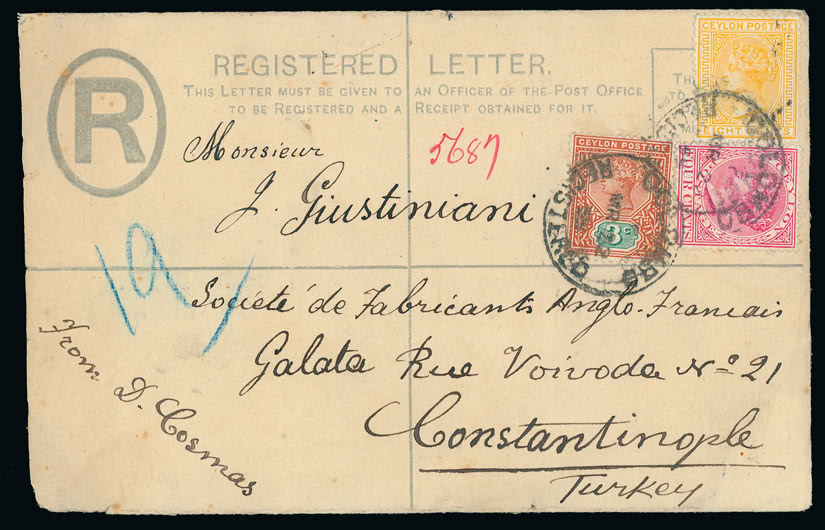 REGISTERED LETTER.
THIS LETTER MUST BE GIVEN TO AN OFFICER OF THE POST OFFICE
TO BE REGISTERED AND A RECEIPT OBTAINED FOR IT.
R
TH
TO
CEYLON POSTAGE
EIGHT
CEYLON POSTAGE
3c
CEYLON
FOUR
COLOMBO
REGISTERED
Monsieur
5687
J. Giustiniani
19
Societé de Fabricants Anglo-Francais
Galata Rue Voivoda No 21
Constantinople
Turkey
From D. Cosmas